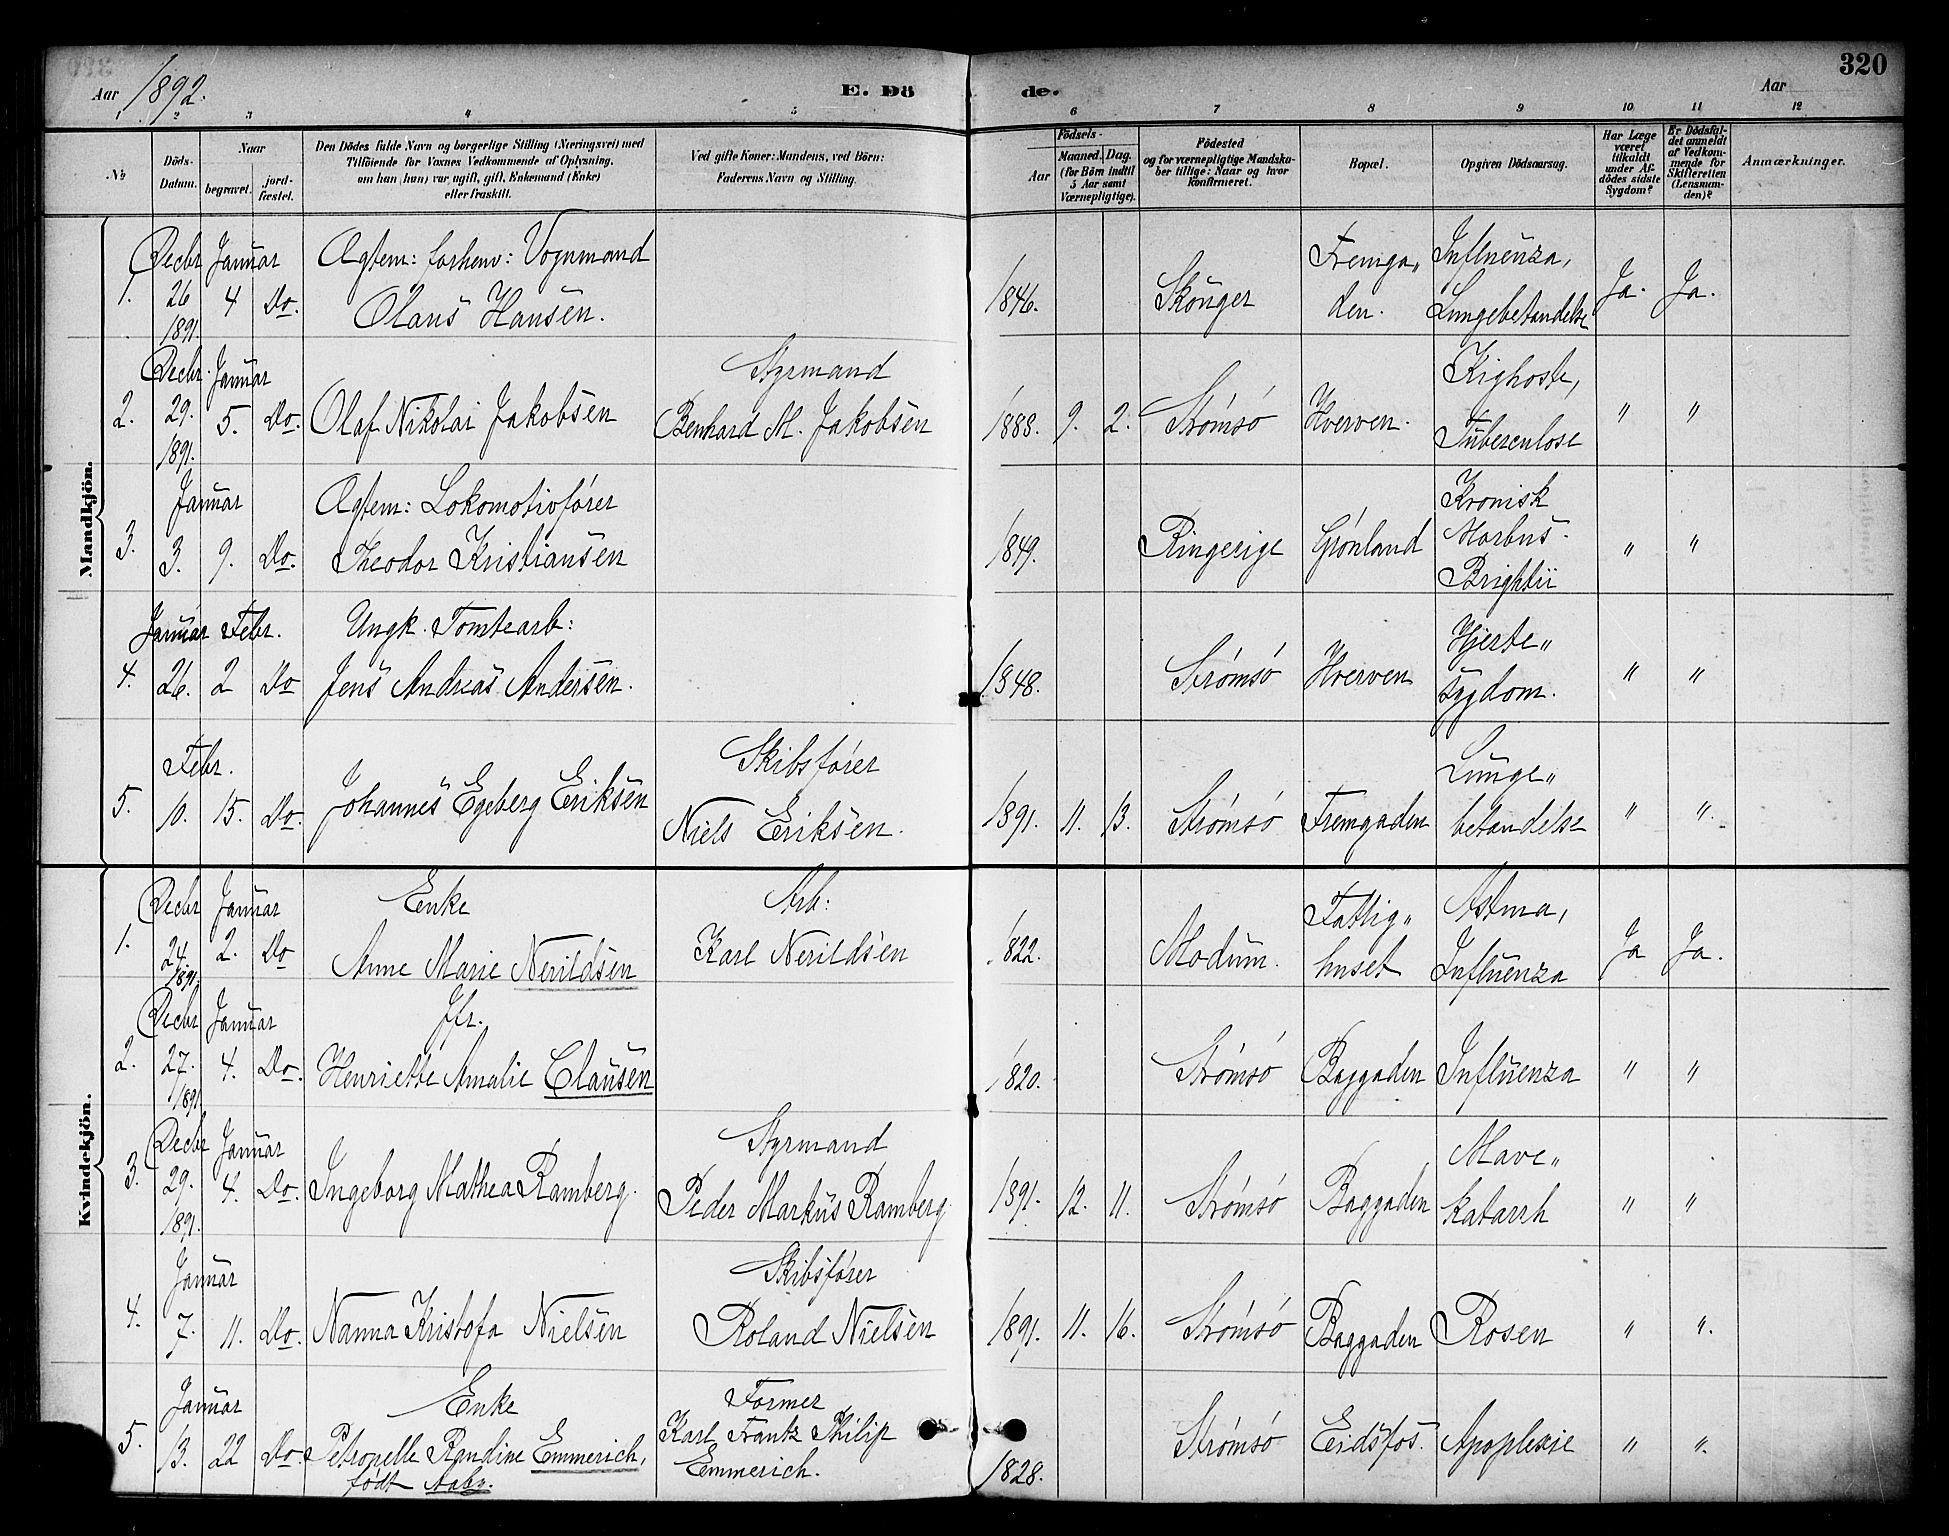 320
Aar 1892. E. Dö de. Aar
1 2 3 4 5 6 7 8 9 10 11 12
No
Döds-Datum.
Naar
begravet. jord-fæstet.
Den Dödes fulde Navn og borgerlige Stilling (Næringsvei) med
Tilföiende for Voxnes Vedkommende af Oplysning,
om han (hun) var ugift, gift, Enkemand (Enke)
eller fraskilt.
Ved gifte Koner: Mandens, ved Börn:
Faderens Navn og Stilling.
Födsels-
Aar Maaned. Dag.
(for Börn indtil
5 Aar samt
Værnepligtige).
Födested
og for værnepligtige Mandska-
ber tillige: Naar og hvor
konfirmeret.
Bopæl.
Opgiven Dödsaarsag.
Har Læge
været
tilkaldt
under Af-
dödes sidste
Sygdom?
Er Dödsfal-
det anmeldt
af Vedkom-
mende for
Skifteretten
(Lensman-
den)?
Anmærkninger.
Mandkjön.
Decbr Januar Ægtem: forhenv: Vognmand Fremga„ Influenza,
1. 26 4 Do. Olaus Hansen. 1846. Skouger den. Lungebetændelse Ja. Ja.
1891.
Decbr. Januar Styrmand Kighoste,
2. 29. 5. Do. Olaf Nikolai Jakobsen Benhard M. Jakobsen 1888. 9. 2. Strømsø Hverven. Tuberculose " "
1891.
Januar Ægtem: Lokomotivfører Kronisk
3. 3. 9. Do. Theodor Kristiansen 1849. Ringerige Grønland Morbus- " "
Brightii
Januar Febr. Ungk. Tomtearb: Hjerte„
4. 26. 2 Do Jens Andreas Andersen. 1848. Strømsø Hverven sygdom. " "
Febr. Skibsfører Lunge„
5. 10. 15. Do. Johannes Egeberg Eriksen Niels Eriksen. 1891. 11. 13. Strømsø Fremgaden betændelse " "
Kvindekjön.
Decbr Januar Enke Arb: Fattig„ Astma,
1. 24. 2. Do Anne Marie Nerildsen Karl Nerildsen 1822. Modum. huset Influenza Ja Ja.
1891.
Decbr Januar Jfr.
2. 27. 4. Do. Henriette Amalie Clausen 1820. Strømsø Baggaden Influenza " "
1891
Decbr Januar Styrmand Mave„
3. 29. 4. Do. Ingeborg Mathea Ramberg. Peder Markus Ramberg 1891. 12. 11. Strømsø Baggaden katarrh " "
1891.
Januar Skibsfører
4. 7. 11. Do. Nanna Kristofa Nielsen Roland Nielsen 1891. 11. 16. Strømsø Baggaden Rosen " "
Januar Enke Former
5. 13. 22 Do. Petronelle Randine Emmerich, Karl Frantz Philip Emmerich. 1828. Strømsø Eidsfos. Apoplexie " "
født Aaby.